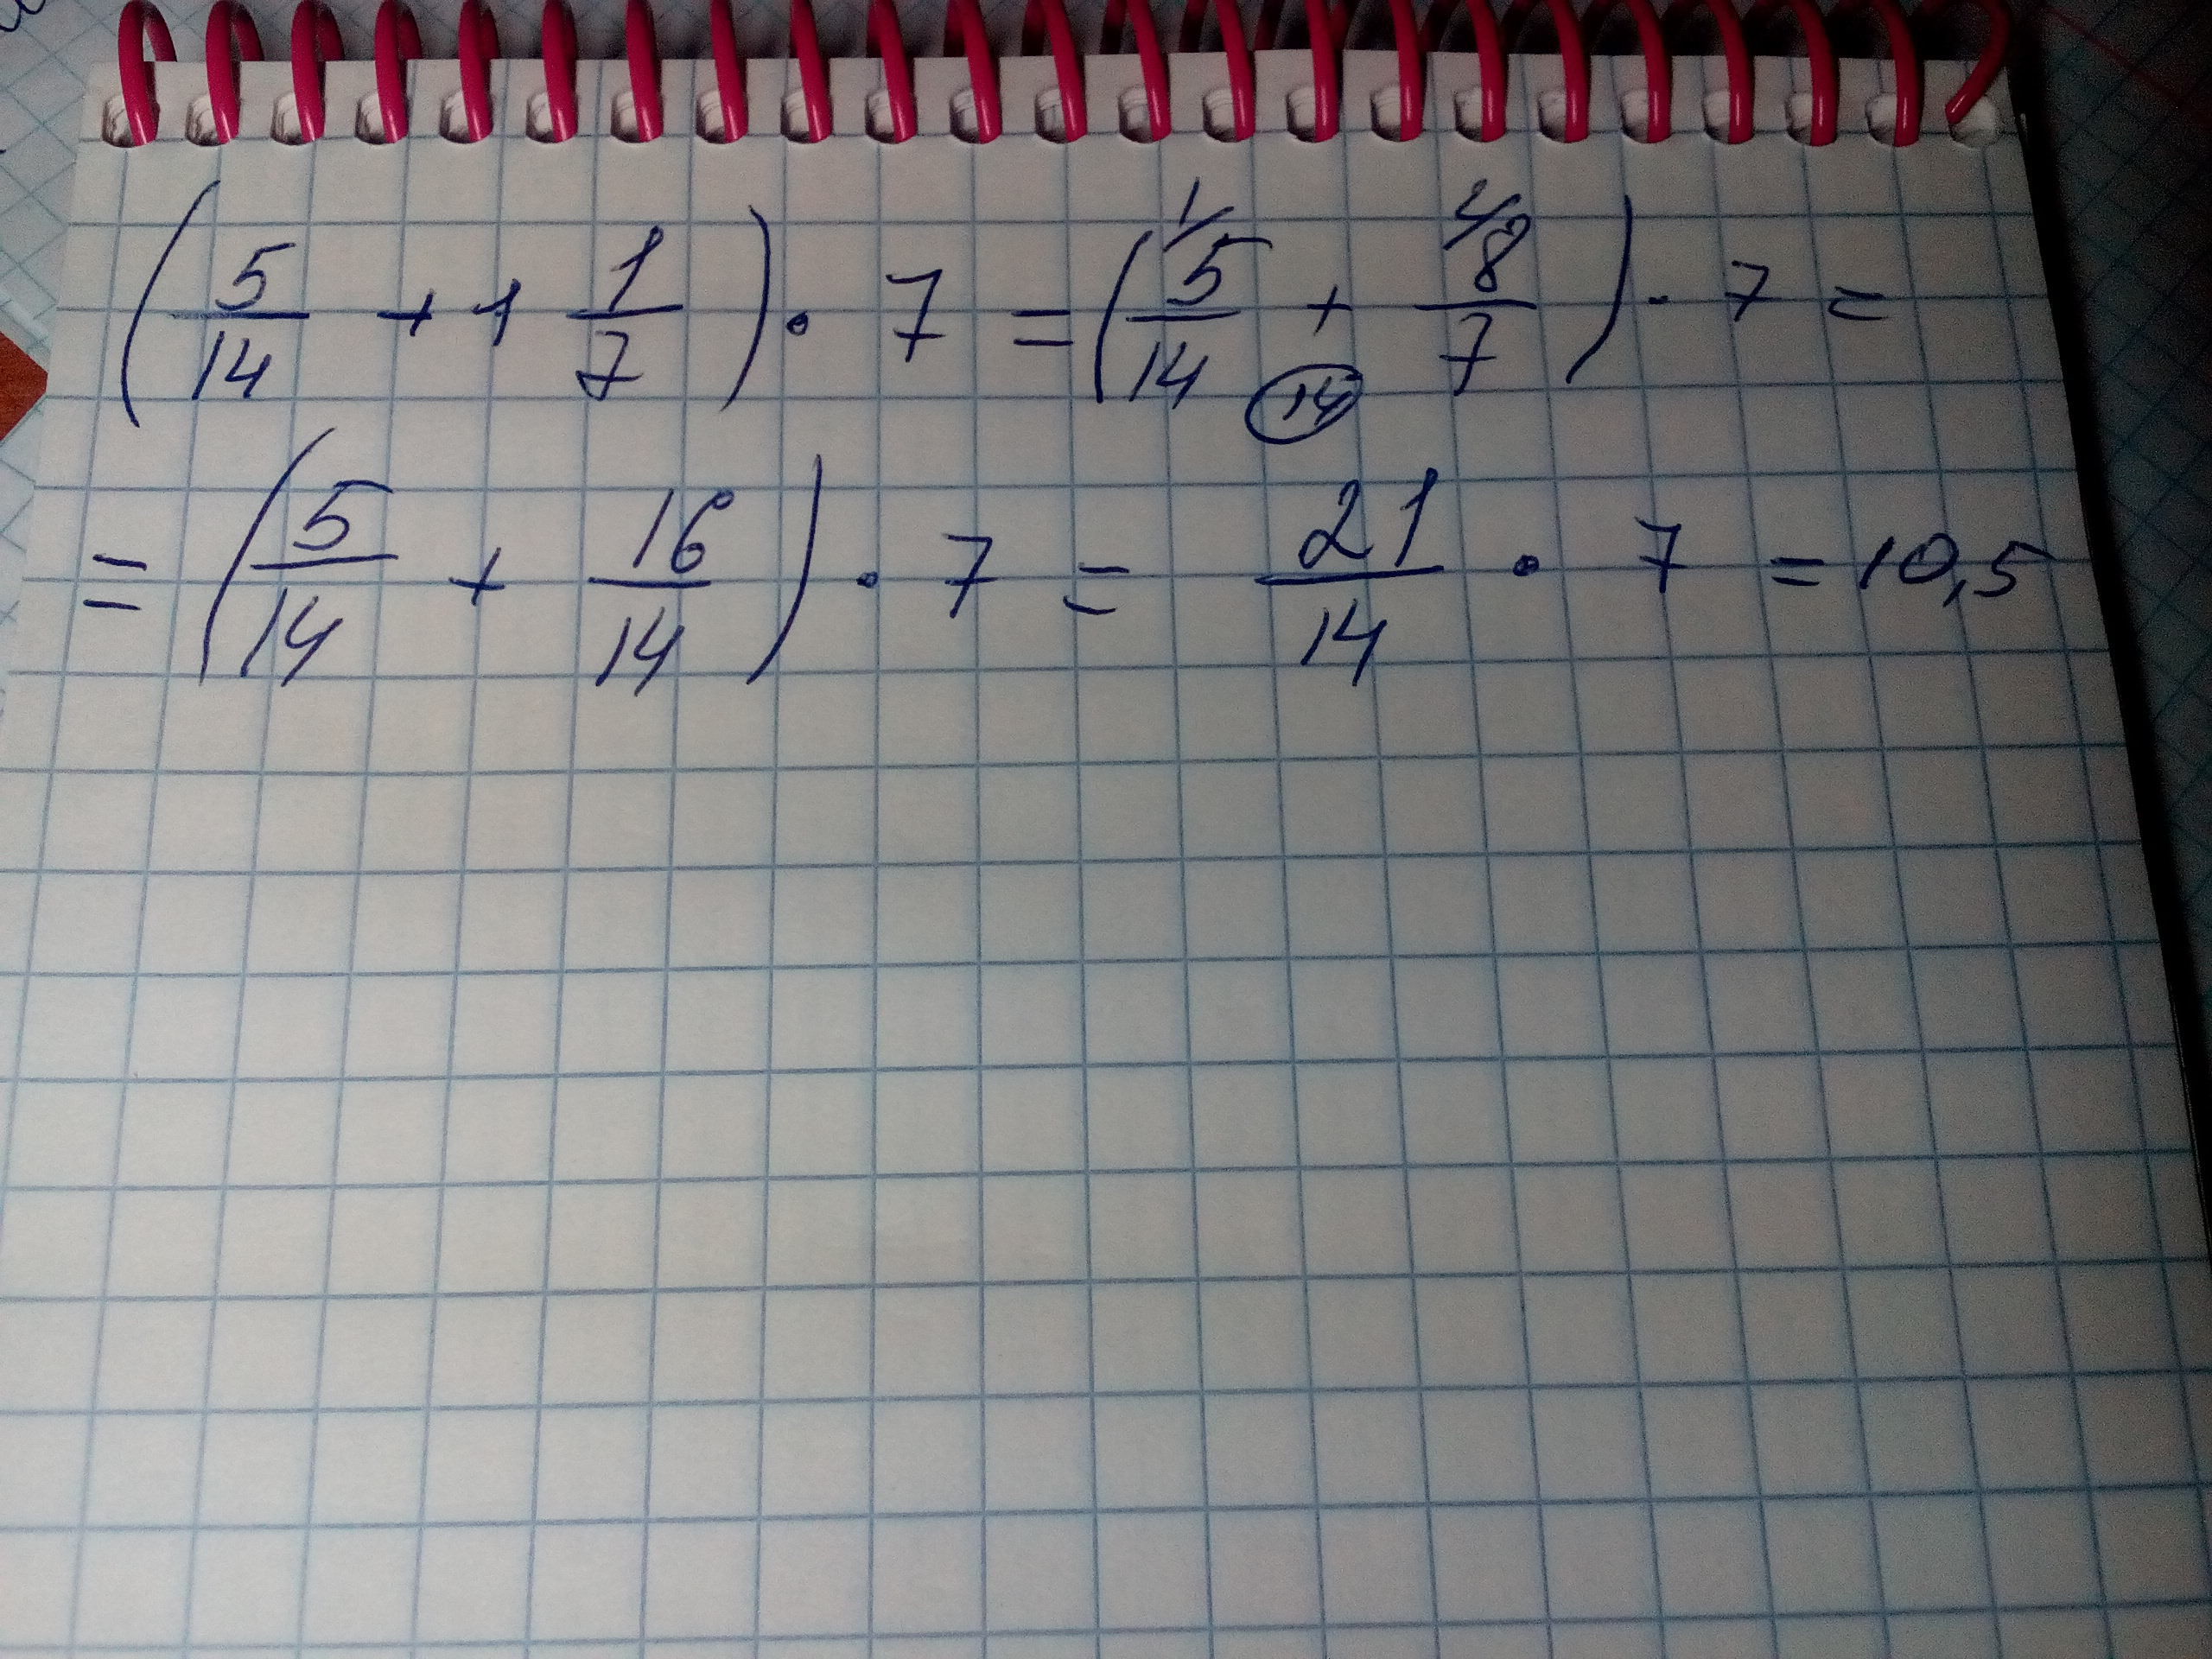 (5/14 + 1 1/7) · 7 = (5/14 + 8/7) · 7 =
1/ 2/
14
= (5/14 + 16/14) · 7 = 21/14 · 7 = 10,5